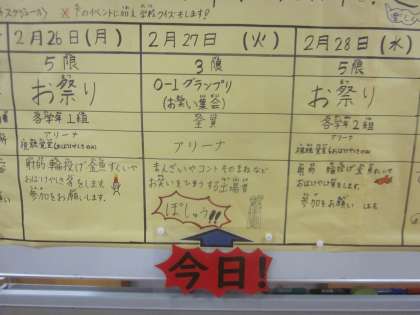 スケジュール ※冬のイベントに加え学校クイズもします!
2月26日(月)
2月27日(火)
2月28日(水)
5限
3限
5限
お祭り
0-1グランプリ
(お笑い集会)
お祭り
各学年1組
全員
各学年2組
アリーナ
アリーナ
アリーナ
射的輪投げ金魚すくいや
おばけやしき等をします。
参加をお願いします。
まんざいやコントそのまねなど
お笑いをひろうする出場者
ぼしゅう!!
射的 輪投げ 金魚すくい
おばけやしき等をします。
参加をお願い します
今日!